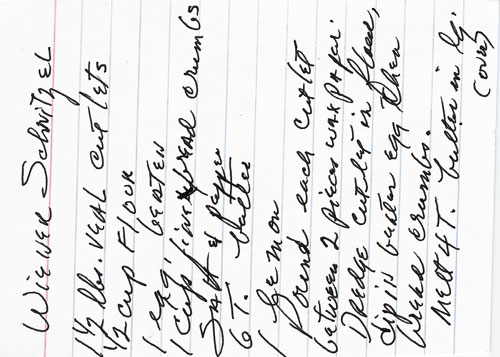 WIENER Schnitzel
1 1/2 lbs. VEAL cutlets
1/2 cup Flour
1 egg, beaten
1 cup fine bread crumbs
Salt & pepper
6 T. butter
1 lemon
Pound each cutlet
between 2 pieces wax paper.
Dredge cutlet in flour,
dip in beaten egg then
bread crumbs.
Melt 4 T. butter in lg.
(over)